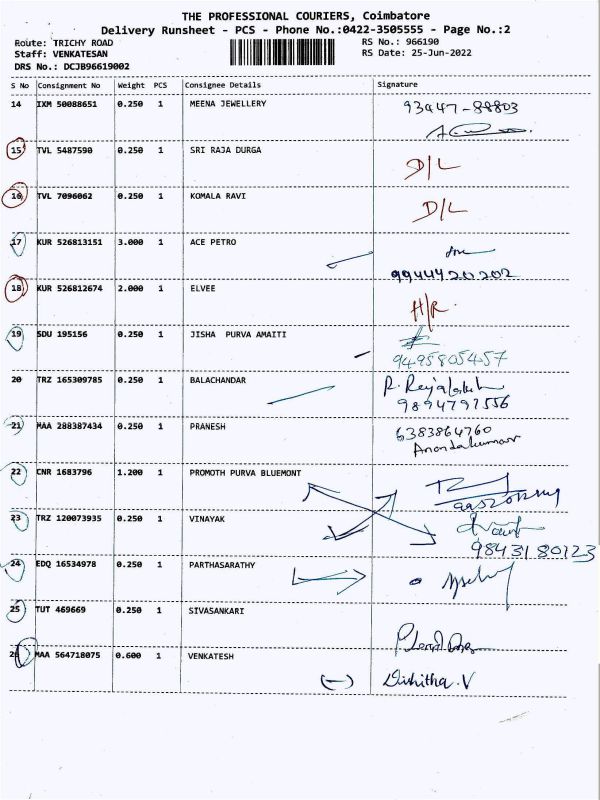 THE PROFESSIONAL COURIERS, Coimbatore
Delivery Runsheet - PCS - Phone No.:0422-3505555 - Page No.:2
Route: TRICHY ROAD
Staff: VENKATESAN
DRS No.: DCJB96619002
RS No.: 966190
RS Date: 25-Jun-2022
S No Consignment No Weight PCS Consignee Details Signature
14 IXM 50088651 0.250 1 MEENA JEWELLERY 93447-88803
15 TVL 5487590 0.250 1 SRI RAJA DURGA D/L
16 TVL 7096062 0.250 1 KOMALA RAVI D/L
17 KUR 526813151 3.000 1 ACE PETRO
9944420202
18 KUR 526812674 2.000 1 ELVEE H/R
19 SDU 195156 0.250 1 JISHA PURVA AMAITI
9495805457
20 TRZ 165309785 0.250 1 BALACHANDAR
9894797556
21 MAA 288387434 0.250 1 PRANESH 6383864760
Anandakumar
22 CNR 1683796 1.200 1 PROMOTH PURVA BLUEMONT
23 TRZ 120073935 0.250 1 VINAYAK
9843180123
24 EDQ 16534978 0.250 1 PARTHASARATHY
25 TUT 469669 0.250 1 SIVASANKARI
26 MAA 564718075 0.600 1 VENKATESH
(-) Dishitha.V